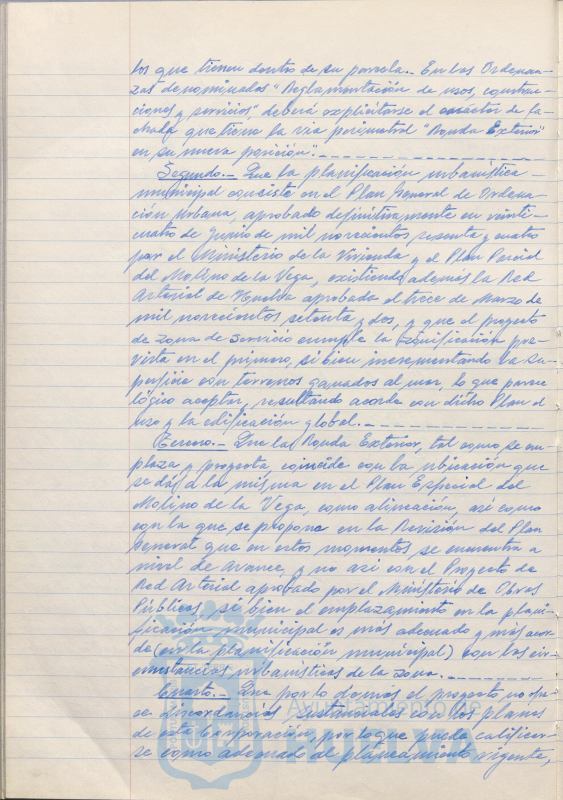 los que tienen dentro de su parcela.- En las Ordenan-
zas denominadas "Reglamentación de usos, construc-
ciones y servicios" deberá explicitarse el carácter de fa-
chada que tiene la vía perimetral "Ronda Exterior"
en su nueva posición".-
Segundo.- Que la planificación urbanística -
municipal consiste en el Plan General de Ordena-
ción Urbana, aprobado definitivamente en veinti-
cuatro de Junio de mil novecientos sesenta y cuatro
por el Ministerio de la Vivienda y el Plan Parcial
del Molino de la Vega, existiendo además la Red
Arterial de Huelva aprobada el trece de Marzo de
mil novecientos setenta y dos, y que el proyecto
de zona de servicio cumple la zonificación pre-
vista en el primero, si bien incrementando la su-
perficie con terrenos ganados al mar, lo que parece
lógico aceptar, resultando acorde con dicho Plan el
uso y la edificación global.-
Tercero.- Que la Ronda Exterior, tal como se em-
plaza y proyecta, coincide con la ubicación que
se dá a la misma en el Plan Especial del
Molino de la Vega, como alineación, así como
con la que se propone en la Revisión del Plan
General que en estos momentos se encuentra a
nivel de Avance, y no así con el Proyecto de
Red Arterial aprobado por el Ministerio de Obras
Públicas, si bien el emplazamiento en la plani-
ficación municipal es más adecuado y más acor-
de (en la planificación municipal) con las cir-
cunstancias urbanísticas de la zona.-
Cuarto.- Que por lo demás el proyecto no ofre-
ce discordancias sustanciales con los planes
de esta Corporación, por lo que puede calificar-
se como adecuado al planeamiento vigente,
Ayuntamiento de
HUELVA